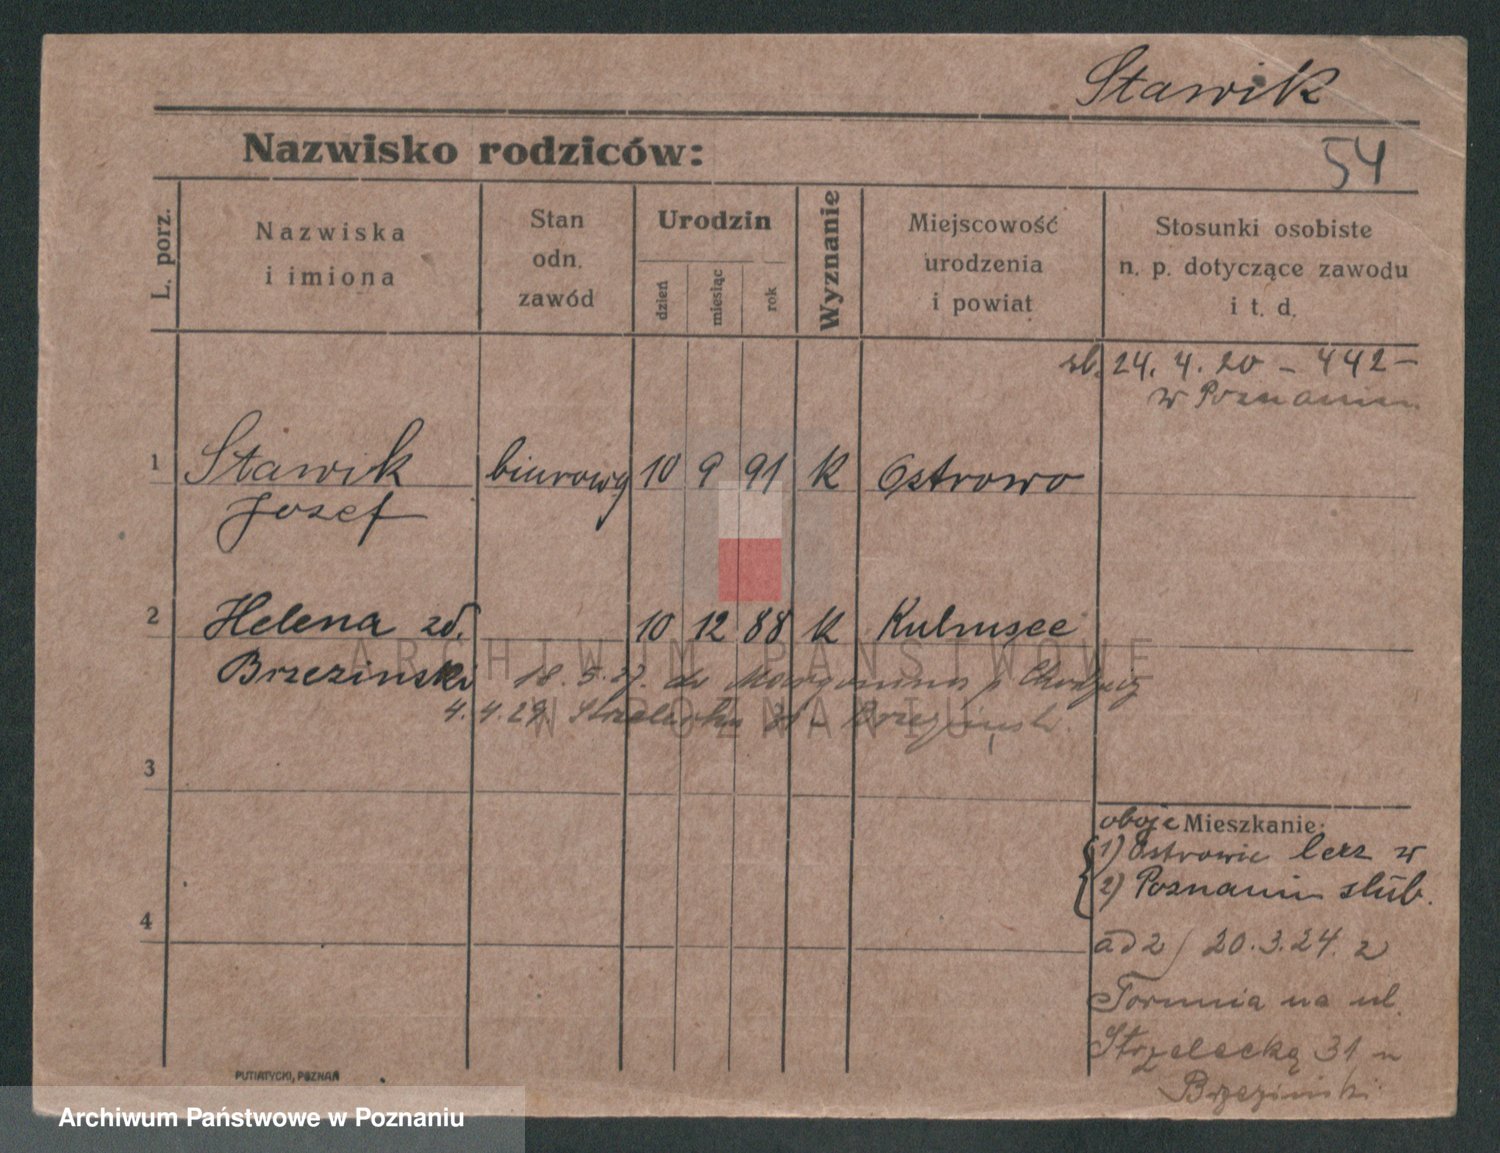 Stawik
Nazwisko rodziców:
54
L. porz.
Nazwiska
i imiona
Stan
odn.
zawód
Urodzin
dzień
miesiąc
rok
Wyznanie
Miejscowość
urodzenia
i powiat
Stosunki osobiste
n. p. dotyczące zawodu
i t. d.
śl. 24. 4. 20 – 442 –
w Poznaniu
1 Stawik biurowy 10 9 91 K Ostrowo
Josef
2 Helena zd. 10 12 88 K Kulmsee
Brzezinski 18. 5. 27. do p Chodzież
4. 4. 29 Strzelecka 31 – Brzezinski
ARCHIWUM PAŃSTWOWE
W POZNANIU
3
oboje Mieszkanie:
1) Ostrowie lecz w
2) Poznaniu slub.
4
ad 2) 20. 3. 24. z
Torunia na ul
Strzelecką 31 u
Brzezinski
PUTIATYCKI, POZNAŃ
Archiwum Państwowe w Poznaniu